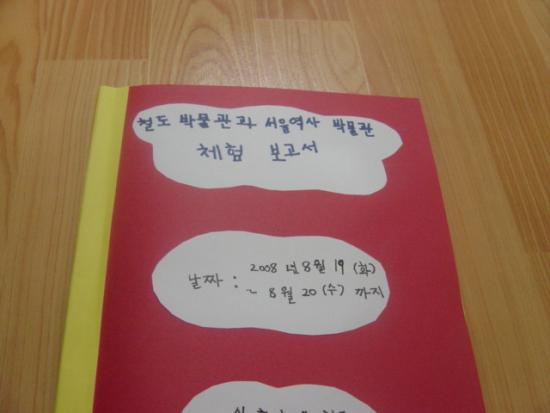 철도 박물관과 서울역사 박물관
체험 보고서
날짜 : 2008 년 8월 19 (화)
~ 8월 20 (수) 까지